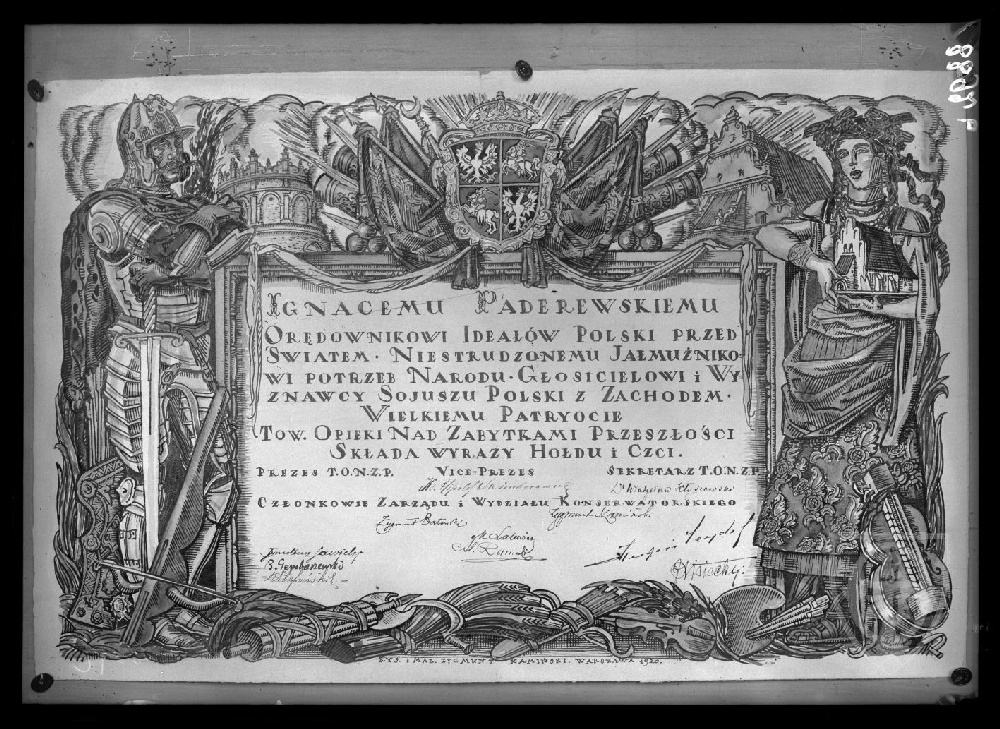 IGNACEMU PADEREWSKIEMU
ORĘDOWNIKOWI IDEAŁÓW POLSKI PRZED
ŚWIATEM · NIESTRUDZONEMU JAŁMUŻNIKO-
WI POTRZEB NARODU · GŁOSICIELOWI i WY
ZNAWCY SOJUSZU POLSKI Z ZACHODEM ·
WIELKIEMU PATRYOCIE
TOW. OPIEKI NAD ZABYTKAMI PRZESZŁOŚCI
SKŁADA WYRAZY HOŁDU i CZCI.
PREZES T.O.N.Z.P. VICE-PREZES SEKRETARZ T.O.N.Z.P.
CZŁONKOWIE ZARZĄDU i WYDZIAŁU KONSERWATORSKIEGO
RYS. i MAL. ZYGMUNT KAMIŃSKI. WARSZAWA 1920.